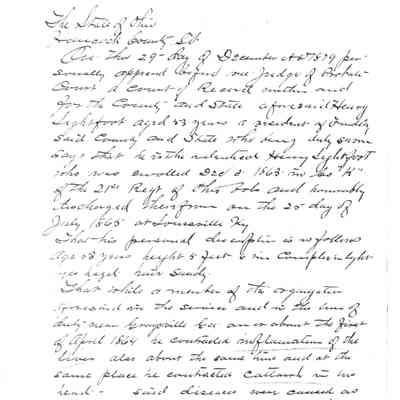 The State of Ohio
Hancock County SS
On this 29th day of December AD 1879 per-
sonally appeared before me Judge of Probate
Court a Court of Record within and
for the County and State aforesaid Henry
Lightfoot aged 53 years a resident of Findlay
said County and State who being duly sworn
says that he is the identical Henry Lightfoot
who was enrolled Dec 2 1863 in Co "H"
of the 21st Regt of Ohio Vols and honorably
discharged therefrom on the 25 day of
July 1865 at Louisville Ky
That his personal description is as follows
age 53 years height 5 feet 6 in Complexion light
eyes hazel hair Sandy
That while a member of the organization
aforesaid in the service and in the line of
duty near Graysville Ga on or about the first
of April 1864 he contracted inflamation of the
liver also about the same time and at the
same place he contracted cattarrh in his
head - said diseases were caused as